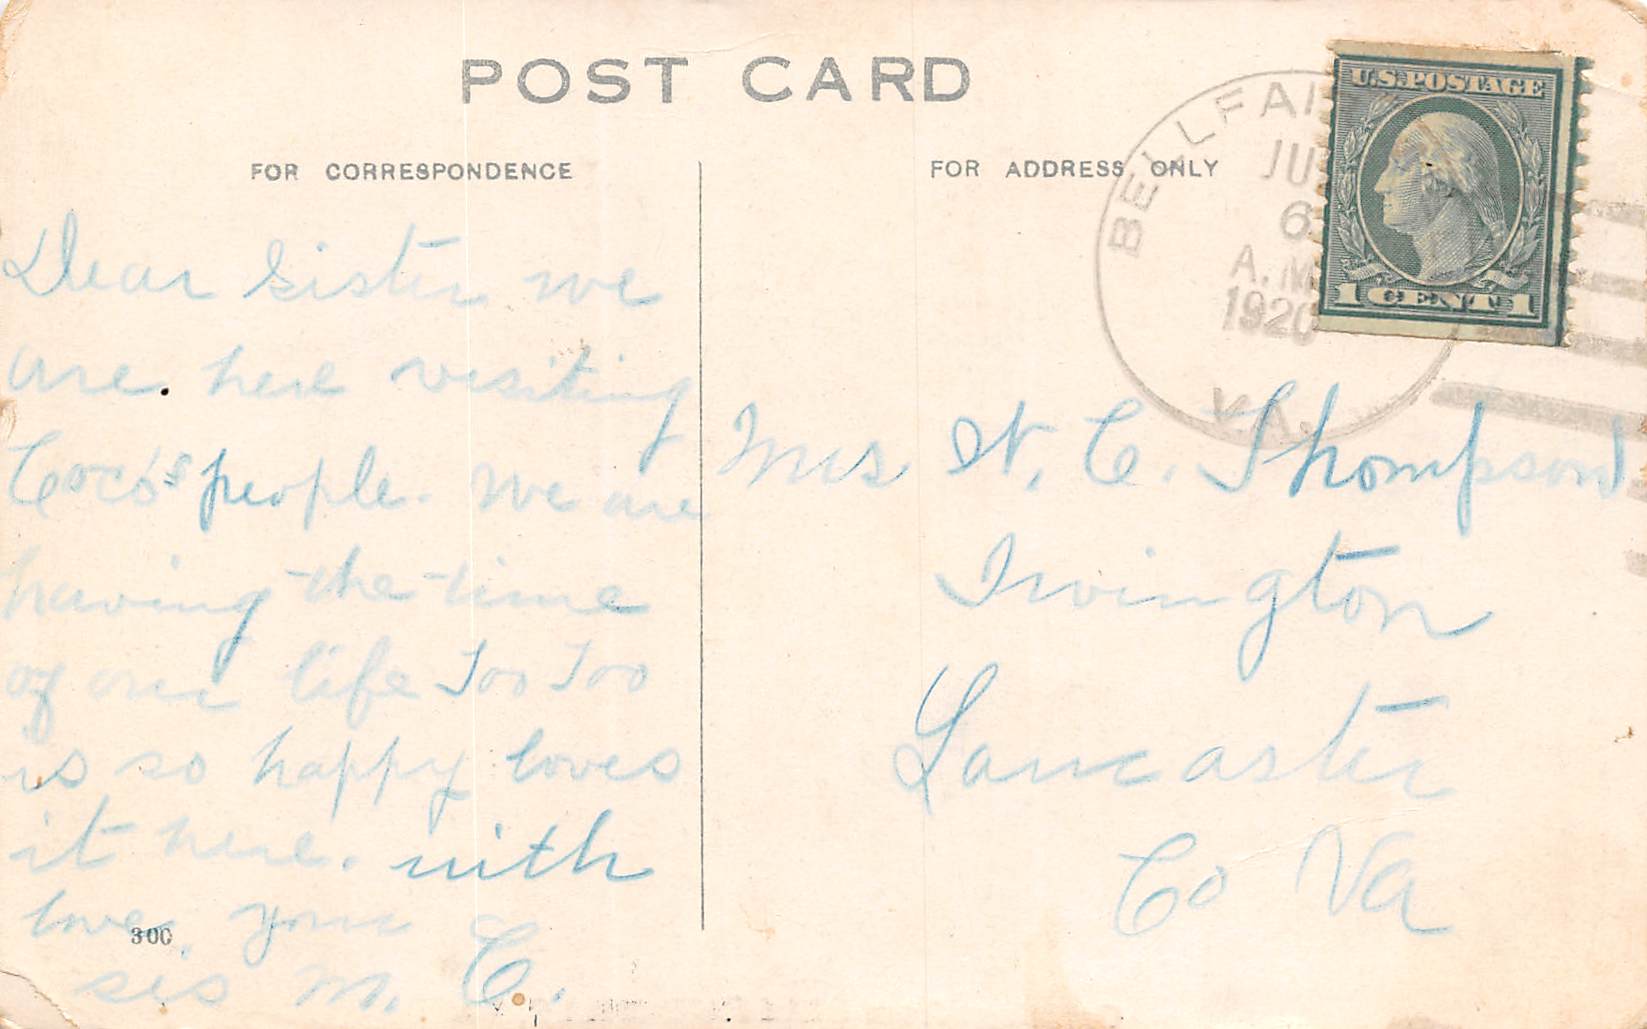 POST CARD
FOR CORRESPONDENCE
FOR ADDRESS ONLY
BELLFAI
JU
6
A.M
1920
VA.
U.S. POSTAGE
1 CENT 1
Dear Sister we
are here visiting
Coco's people. We are
having the time
of our life Too Too
is so happy loves
it here. with
love, your
sis M. C.
300
Mrs N. C. Thompson
Irvington
Lancaster
Co Va